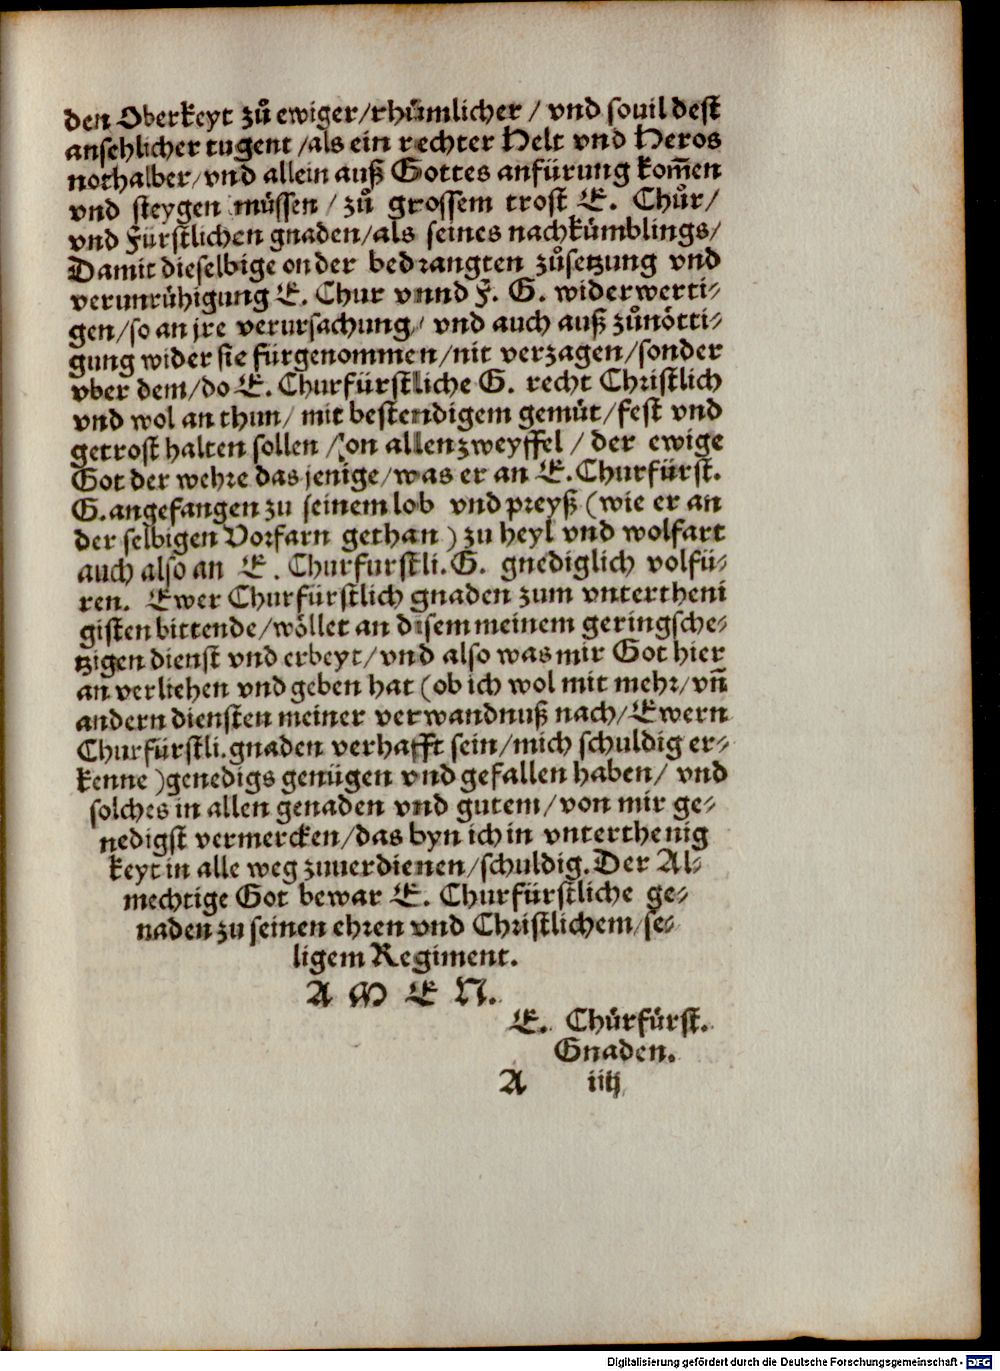 den Oberkeyt zů ewiger/rhůmlicher / vnd souil dest
ansehlicher tugent /als ein rechter Helt vnd Heros
nothalber/vnd allein auß Gottes anfürung kom̄en
vnd steygen müssen / zů grossem trost E. Chůr/
vnd Fürstlichen gnaden/als seines nachkümblings/
Damit dieselbige on der bedrangten zůsetzung vnd
verunrühigung E. Chur vnnd F. G. widerwerti⸗
gen/so an jre verursachung/ vnd auch auß zůnötti⸗
gung wider sie fürgenommen/nit verzagen/sonder
vber dem/do E. Churfürstliche G. recht Christlich
vnd wol an thun/ mit bestendigem gemüt/fest vnd
getrost halten sollen / on allen zweyffel / der ewige
Got der wehre das jenige/was er an E.Churfürst.
G.angefangen zu seinem lob vnd preyß (wie er an
der selbigen Vorfarn gethan ) zu heyl vnd wolfart
auch also an E . Churfurstli.G. gnediglich volfü⸗
ren. Ewer Churfürstlich gnaden zum vntertheni
gisten bittende/wöllet an disem meinem geringsche⸗
tzigen dienst vnd erbeyt/vnd also was mir Got hier
an verliehen vnd geben hat (ob ich wol mit mehr/vn̄
andern diensten meiner verwandnuß nach/Ewern
Churfürstli.gnaden verhafft sein/mich schuldig er⸗
kenne )genedigs genügen vnd gefallen haben/ vnd
solches in allen genaden vnd gutem/von mir ge⸗
nedigst vermercken/das byn ich in vnterthenig
keyt in alle weg zuuerdienen/schuldig.Der Al⸗
mechtige Got bewar E. Churfürstliche ge⸗
naden zu seinen ehren vnd Christlichem/se⸗
ligem Regiment.
A M E N.
E. Chůrfürst.
Gnaden.
A iiij
Digitalisierung gefördert durch die Deutsche Forschungsgemeinschaft - DFG